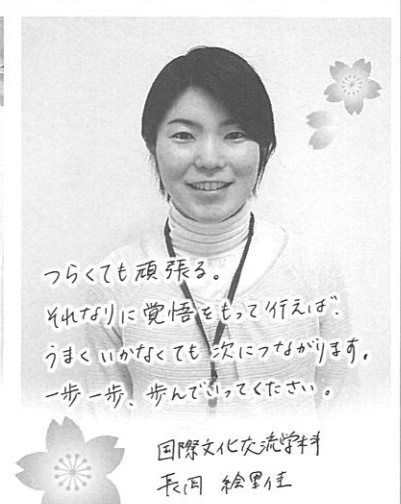 つらくても頑張る。
それなりに覚悟をもって行えば、
うまくいかなくても次につながります。
一歩一歩、歩んでいってください。
国際文化交流学科
長岡 絵里佳